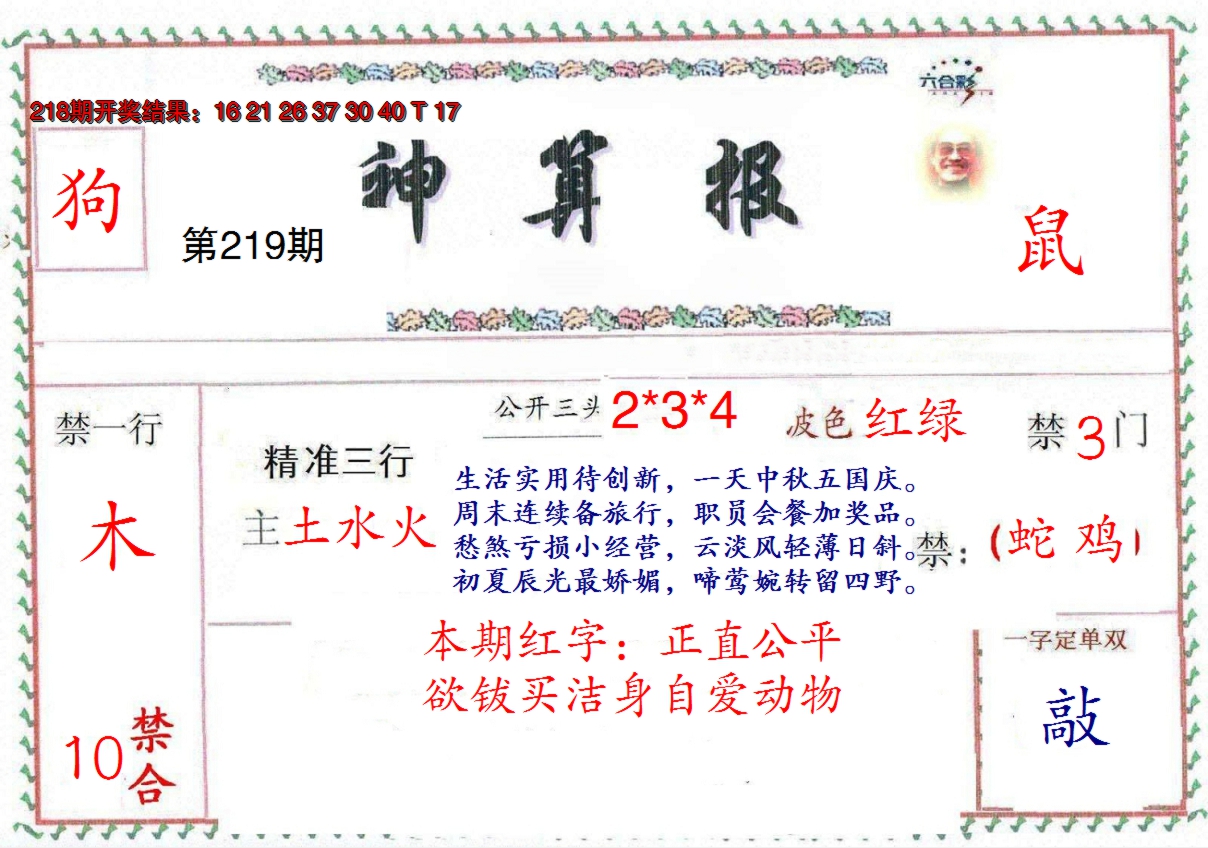 六合彩
218期开奖结果：16 21 26 37 30 40 T 17
神算报
狗
第219期
鼠
禁一行
木
10禁合
公开三头 2*3*4
波色 红绿
禁 3 门
精准三行
主土水火
生活实用待创新，一天中秋五国庆。
周末连续备旅行，职员会餐加奖品。
愁煞亏损小经营，云淡风轻薄日斜。
初夏辰光最娇媚，啼莺婉转留四野。
禁：(蛇 鸡)
本期红字：正直公平
欲钹买洁身自爱动物
一字定单双
敲